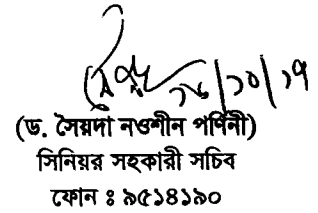 ১৬/১০/১৭
(ড. সৈয়দা নওশীন পর্ণিনী)
সিনিয়র সহকারী সচিব
ফোন ঃ ৯৫১৪১৯০